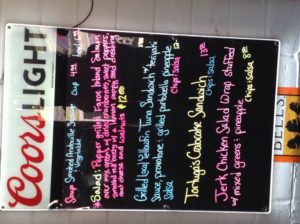 Coors LIGHT
Soup Smoked Andouille Sausage Cup 4.99
Vegetable
Salad: Pepper grilled Faroe Island Salmon
over mix greens, dried cranberries, sweet peppers,
red in a lemon poppy seed dressing
cheese and walnuts $12.00
Grilled Local Yellowfin Tuna Sandwich w/ teriyaki
Sauce, provolone, grilled portobello pineapple
Salsa Chips & Salsa
Tortuga's Crabcake Sandwich
Chips & Salsa
Jerk Chicken Salad Wrap stuffed
w/ mixed greens & pineapple
Chips & Salsa
BELL'S